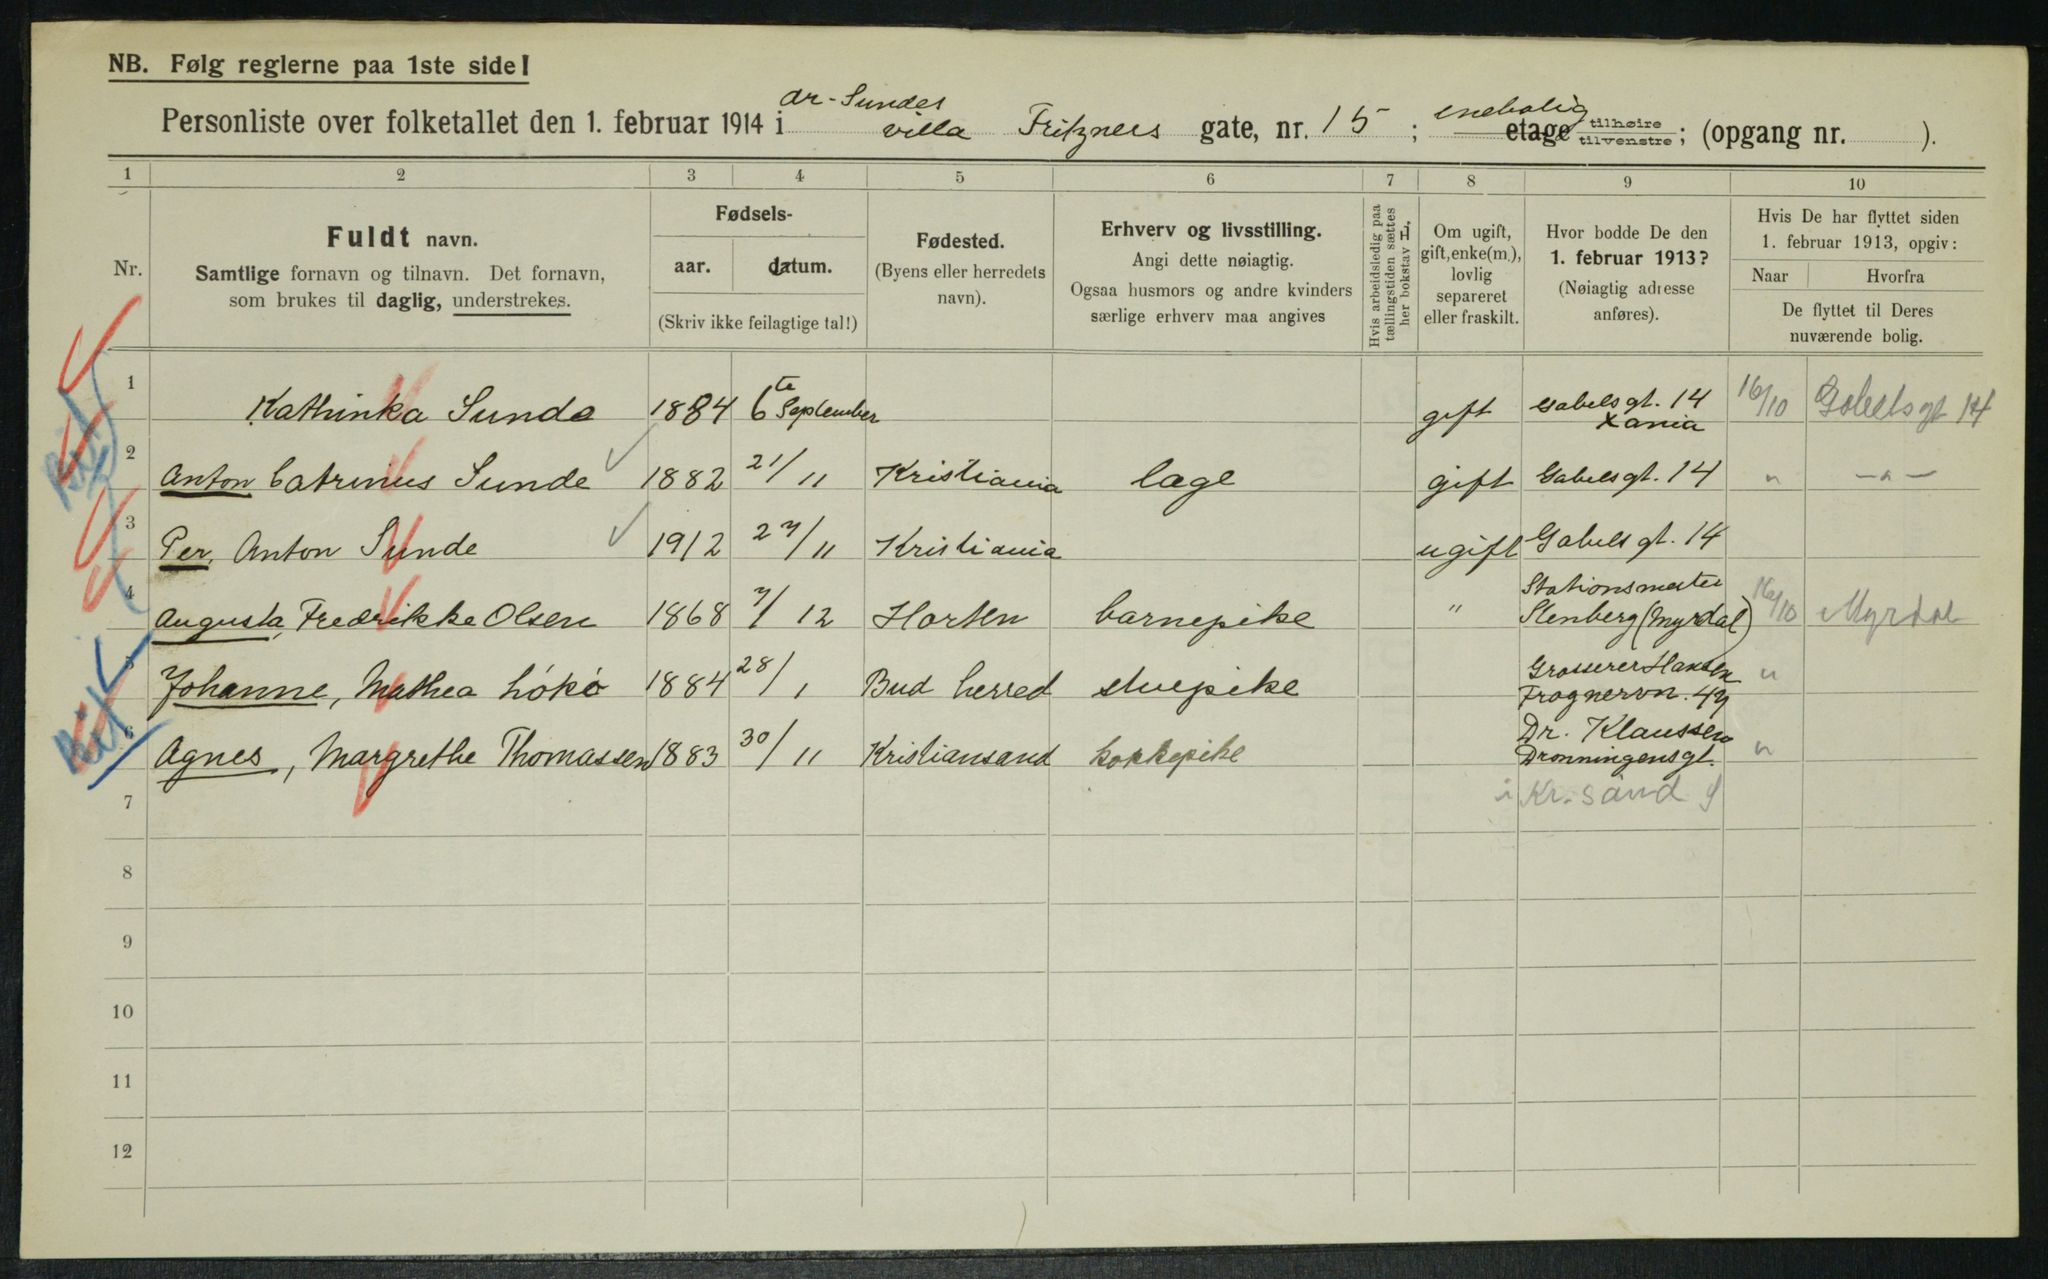 NB. Følg reglerne paa 1ste side!
Dr. Sundes
Personliste over folketallet den 1. februar 1914 i villa Fritzners gate, nr. 15; enebolig etage tilhøire tilvenstre; (opgang nr. ).
1 2 3 4 5 6 7 8 9 10
Nr.
Fuldt navn.
Samtlige fornavn og tilnavn. Det fornavn,
som brukes til daglig, understrekes.
Fødsels-
aar. datum.
(Skriv ikke feilagtige tal!)
Fødested.
(Byens eller herredets
navn).
Erhverv og livsstilling.
Angi dette nøiagtig.
Ogsaa husmors og andre kvinders
særlige erhverv maa angives
Hvis arbeidsledig paa
tællingstiden sættes
her bokstav L.
Om ugift,
gift, enke(m.),
lovlig
separeret
eller fraskilt.
Hvor bodde De den
1. februar 1913?
(Nøiagtig adresse
anføres).
Hvis De har flyttet siden
1. februar 1913, opgiv:
Naar Hvorfra
De flyttet til Deres
nuværende bolig.
1 Kathinka Sunde 1884 6te September gift Gabelsgt. 14 Xania 16/10 Gabelsgt 14
2 Anton Catrinus Sunde 1882 21/11 Kristiania læge gift Gabelsgt. 14 " —"—
3 Per, Anton Sunde 1912 27/11 Kristiania ugift Gabelsgt. 14
4 Augusta, Fredrikke Olsen 1868 7/12 Horten barnepike " Stationsmester Stenberg (Myrdal) 16/10 Myrdal
5 Johanne, Mathea Lökö 1884 28/1 Bud herred stuepike Grosserer Hansen Frognervn. 47 "
6 Agnes, Margrethe Thomassen 1883 30/11 Kristiansand kokkepike Dr. Klaussen Dronningensgt. "
7 i Kr.sand S
8
9
10
11
12